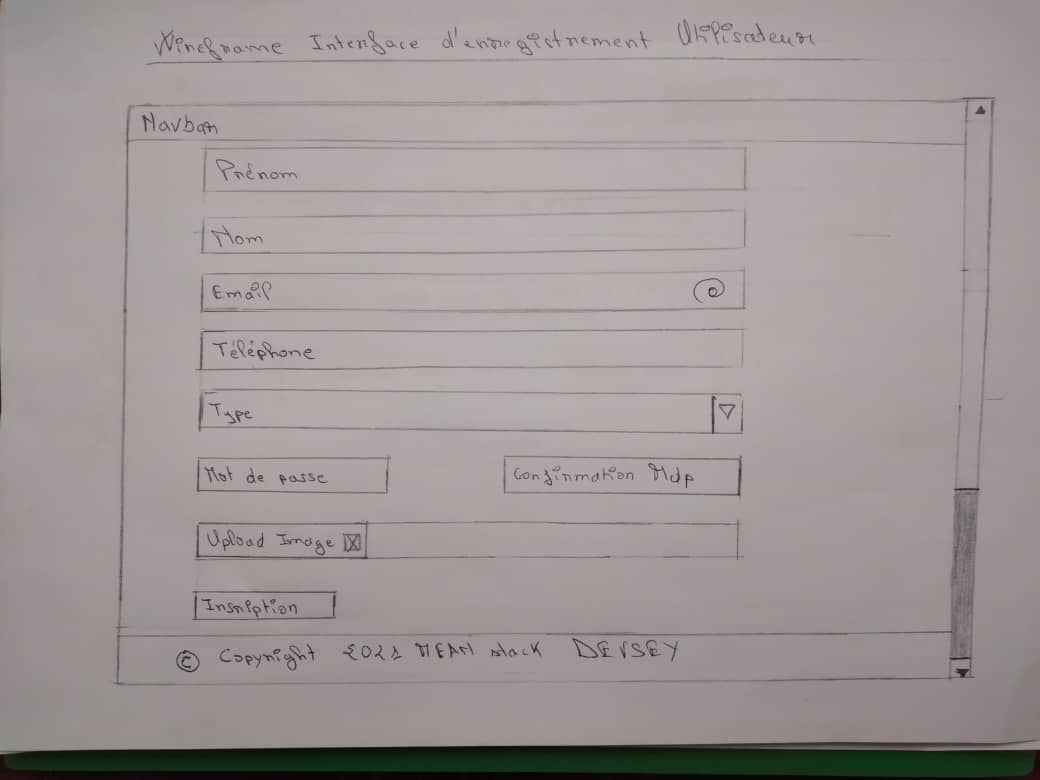 Wireframe Interface d'enregistrement Utilisateur
Navbar
Prénom
Nom
Email
Téléphone
Type
Mot de passe Confirmation Mdp
Upload Image
Insription
© Copyright 2021 MEAN stack DEVSEY